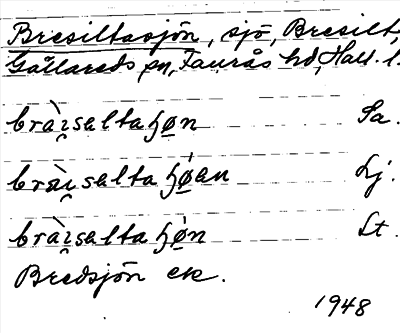 Bresiltasjön, sjö, Bresilt,
Gällareds sn, Faurås hd, Hall. l.
brài̯saltaɧøn Sa.
brài̯saltaɧǿan Lj.
brài̯saltaɧǿn Lt.
Bredsjön ek.
1948